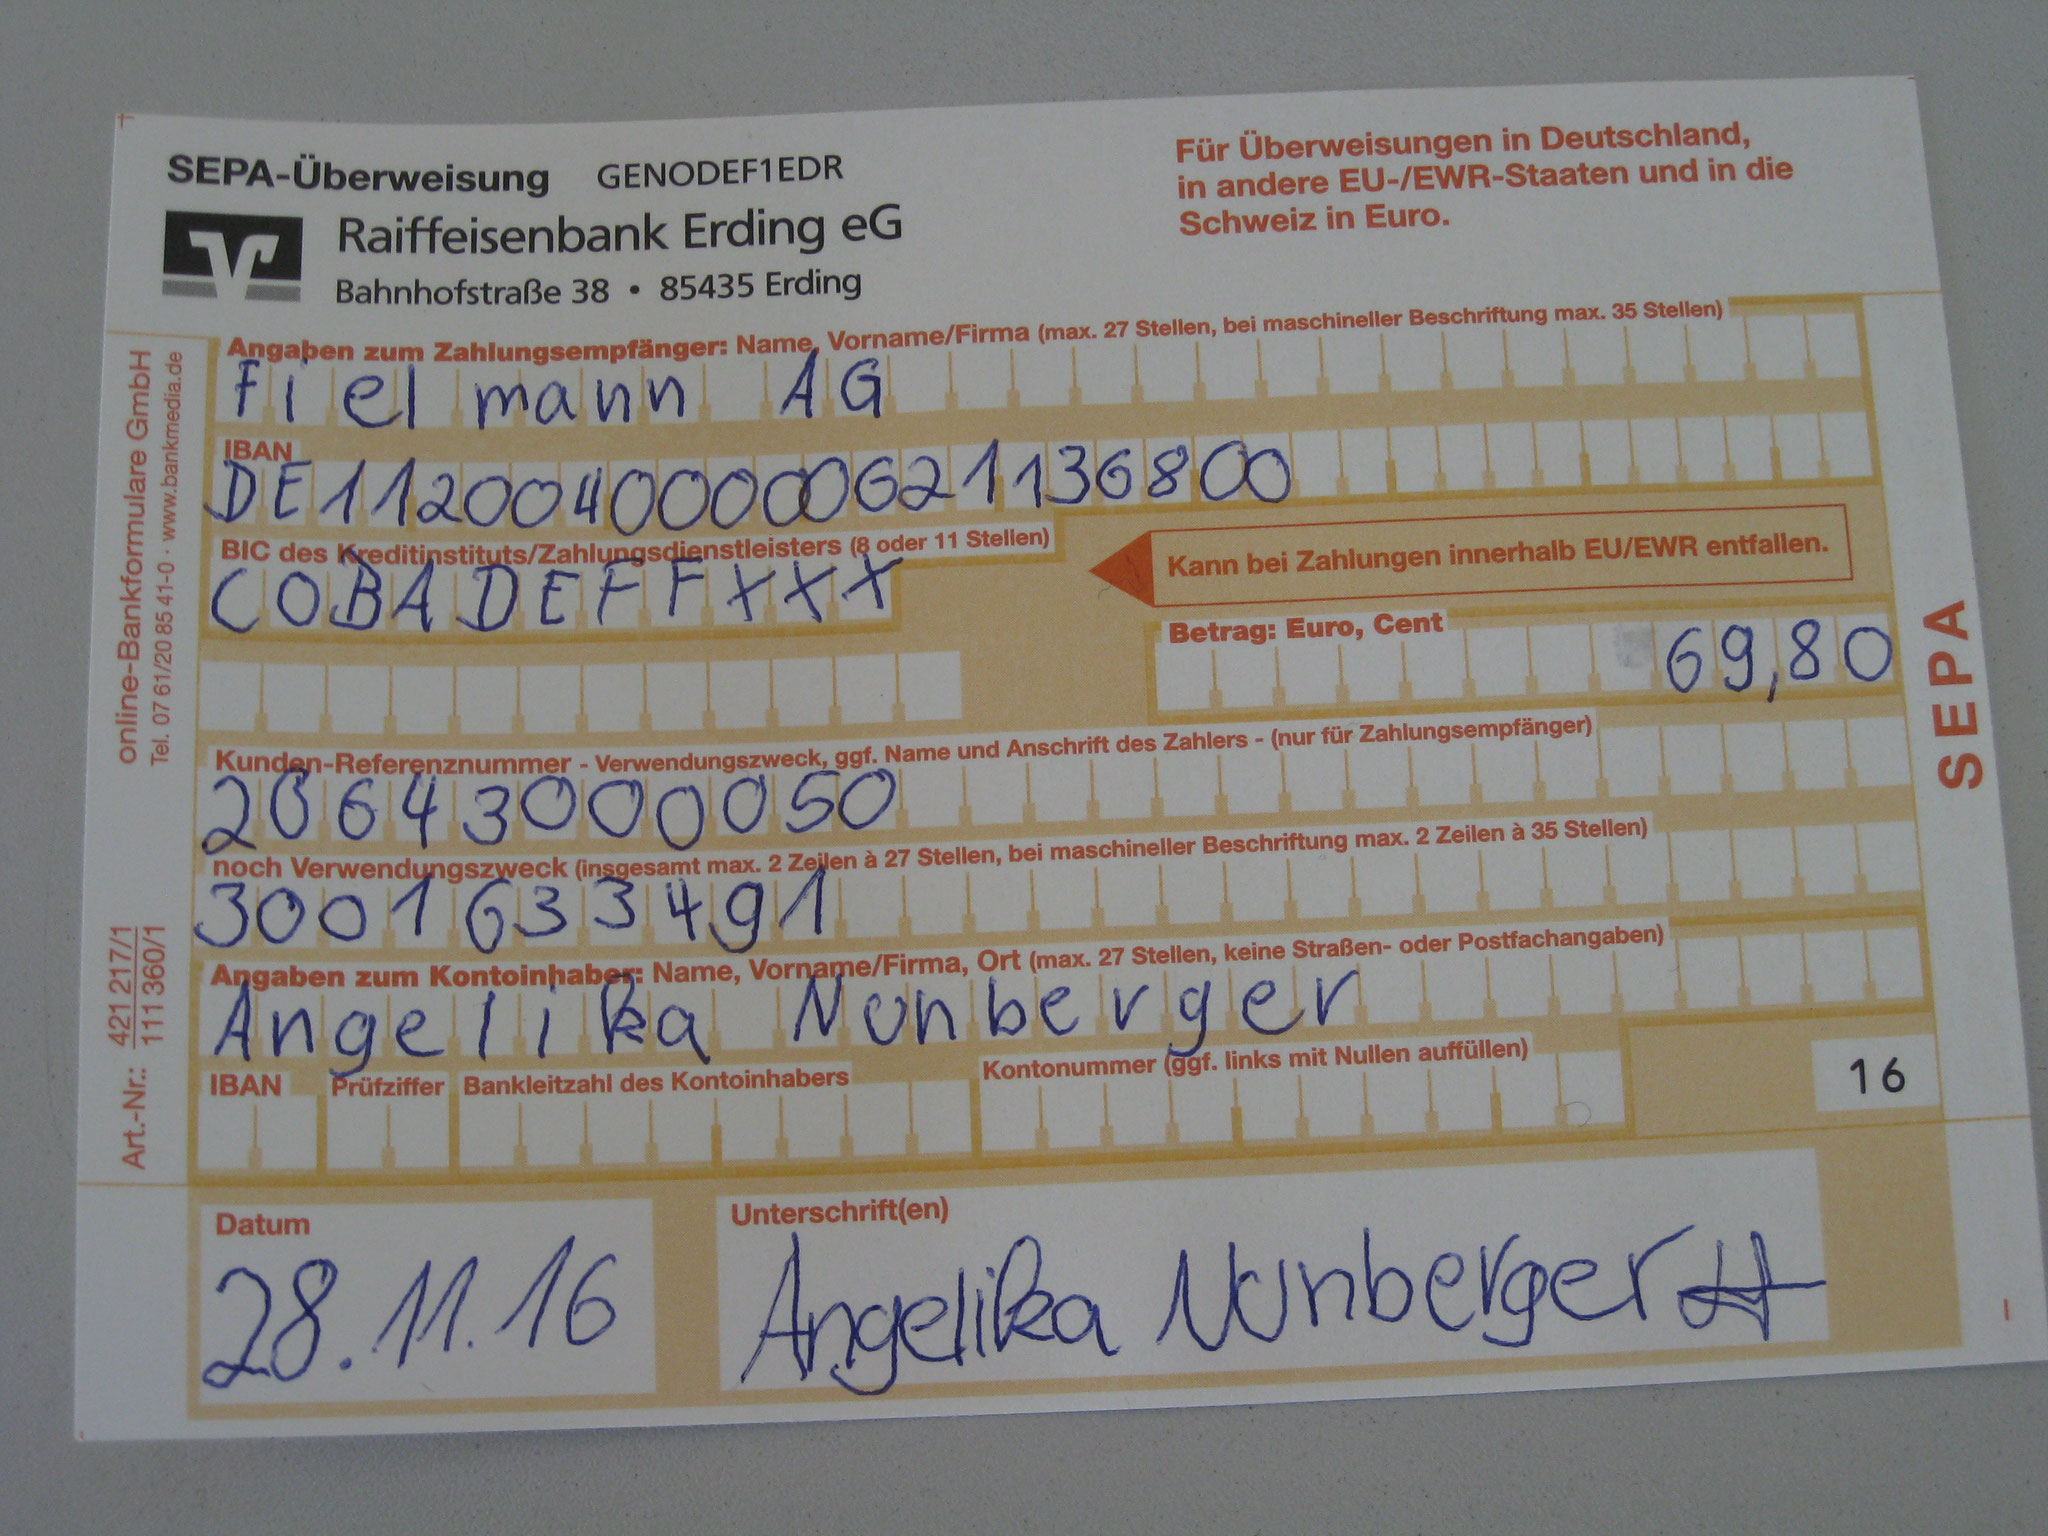 SEPA-Überweisung GENODEF1EDR
Raiffeisenbank Erding eG
Bahnhofstraße 38 • 85435 Erding
Für Überweisungen in Deutschland,
in andere EU-/EWR-Staaten und in die
Schweiz in Euro.
Angaben zum Zahlungsempfänger: Name, Vorname/Firma (max. 27 Stellen, bei maschineller Beschriftung max. 35 Stellen)
Fielmann AG
IBAN
DE11200400000621136800
BIC des Kreditinstituts/Zahlungsdienstleisters (8 oder 11 Stellen)
COBADEFFXXX
Kann bei Zahlungen innerhalb EU/EWR entfallen.
Betrag: Euro, Cent
69,80
Kunden-Referenznummer - Verwendungszweck, ggf. Name und Anschrift des Zahlers - (nur für Zahlungsempfänger)
20643000050
noch Verwendungszweck (insgesamt max. 2 Zeilen à 27 Stellen, bei maschineller Beschriftung max. 2 Zeilen à 35 Stellen)
3001633491
Angaben zum Kontoinhaber: Name, Vorname/Firma, Ort (max. 27 Stellen, keine Straßen- oder Postfachangaben)
Angelika Nunberger
IBAN Prüfziffer Bankleitzahl des Kontoinhabers Kontonummer (ggf. links mit Nullen auffüllen)
16
Datum
28.11.16
Unterschrift(en)
Angelika Nunberger
SEPA
online-Bankformulare GmbH
Tel. 07 61/20 85 41-0 · www.bankmedia.de
Art.-Nr.: 421 217/1
111 360/1